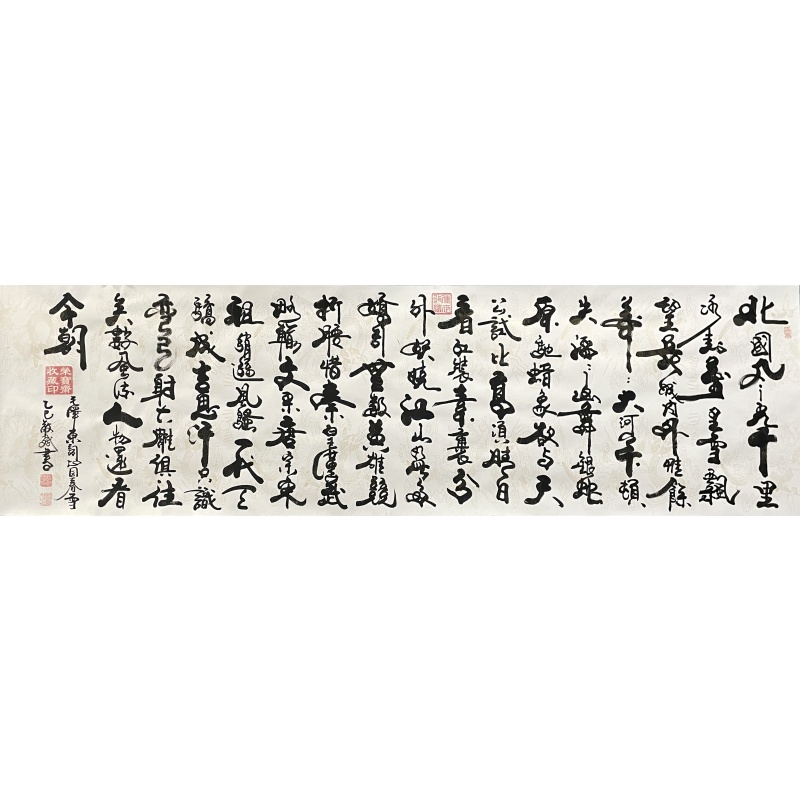 北國风光千里
冰封萬里雪飄
望長城内外惟餘
莽莽大河上下頓
失滔滔山舞銀蛇
原馳蜡象欲与天
公試比高須晴日
看紅裝素裹分
外妖嬈江山如此多
嬌引無數英雄競
折腰惜秦皇漢武
略輸文采唐宗宋
祖稍遜風騷一代天
驕成吉思汗只識
彎弓射大雕俱往
矣數風流人物還看
今朝
毛澤東詞沁園春雪
乙巳書
榮寶齋
收藏印